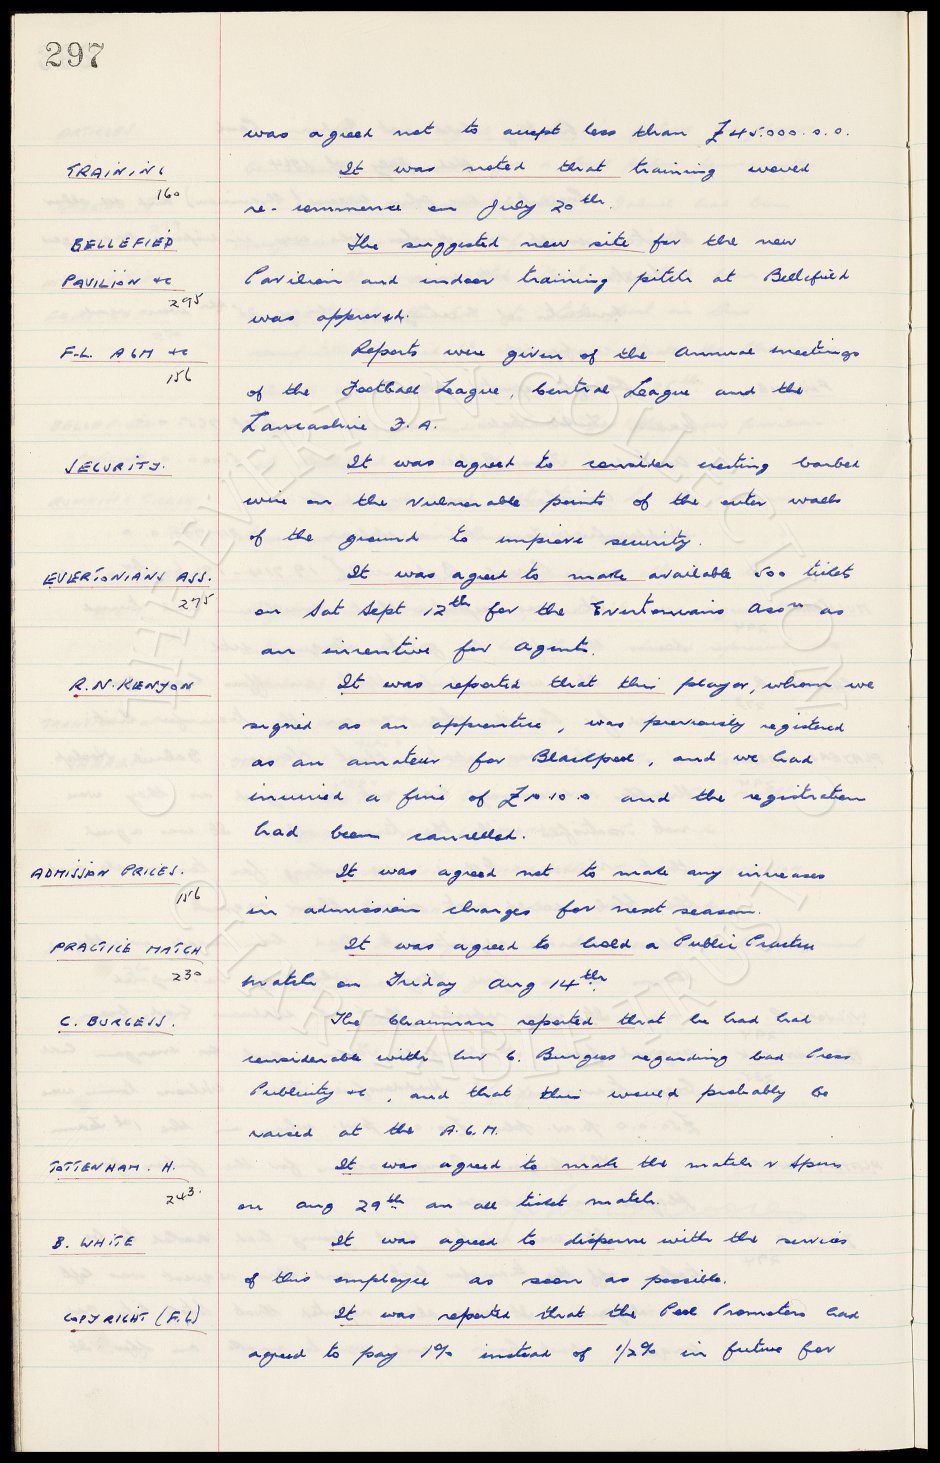 297
was agreed not to accept less than £45.000.0.0.
TRAINING
160
It was noted that training would
re-commence on July 20th.
BELLEFIED
PAVILION &c
295
The suggested new site for the new
Pavilion and indoor training pitch at Bellefield
was approved.
F.L. AGM &c
156
Reports were given of the Annual meetings
of the Football League, Central League and the
Lancashire F.A.
SECURITY.
It was agreed to consider erecting barbed
wire on the vulnerable points of the outer walls
of the ground to improve security.
EVERTONIANS ASS.
275
It was agreed to make available 500 tickets
on Sat Sept 12th for the Evertonians Assn as
an incentive for Agents.
R.N. KENYON
It was reported that this player, whom we
signed as an apprentice, was previously registered
as an amateur for Blackpool, and we had
incurred a fine of £10.10.0 and the registration
had been cancelled.
ADMISSION PRICES.
156
It was agreed not to make any increases
in admission charges for next season.
PRACTICE MATCH
230
It was agreed to hold a Public Practice
match on Friday Aug 14th.
C. BURGESS.
The Chairman reported that he had had
considerable with C. Burgess regarding bad Press
Publicity &c, and that this would probably be
raised at the A.G.M.
TOTTENHAM. H.
243.
It was agreed to make the match v Spurs
on Aug 29th an all ticket match.
B. WHITE
It was agreed to dispense with the services
of this employee as soon as possible.
COPYRIGHT (F.L)
It was reported that the Pool Promoters had
agreed to pay 1% instead of 1/2% in future for
THE EVERTON COLLECTION
CHARITABLE TRUST